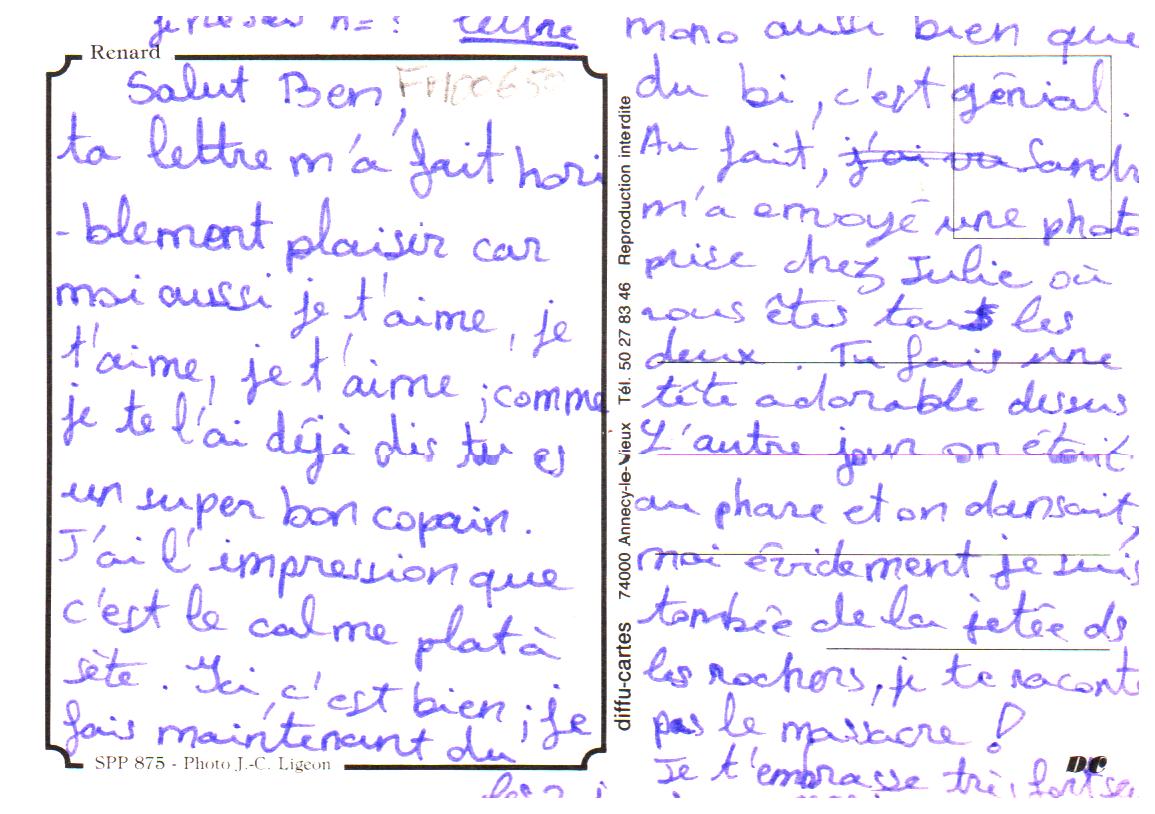 je ne sais n= ! lettre
Renard
Salut Ben,
ta lettre m'a fait hori
-blement plaisir car
moi aussi je t'aime, je
t'aime, je t'aime ; comme
je te l'ai déjà dis tu es
un super bon copain.
J'ai l'impression que
c'est le calme plat à
sète. Ici, c'est bien ; je
fais maintenant du
SPP 875 - Photo J.-C. Ligeon
diffu-cartes 74000 Annecy-le-Vieux Tél. 50 27 83 46 Reproduction interdite
mono aussi bien que
du bi, c'est génial.
Au fait, j'ai vu Sandr
m'a envoyé une photo
prise chez Julie où
vous êtes tous les
deux. Tu fais une
tête adorable dessus
L'autre jour on était
au phare et on dansait,
moi évidement je suis
tombée de la jetée ds
les rochers, je te racont
pas le massacre !
Je t'embrasse très fort
DC